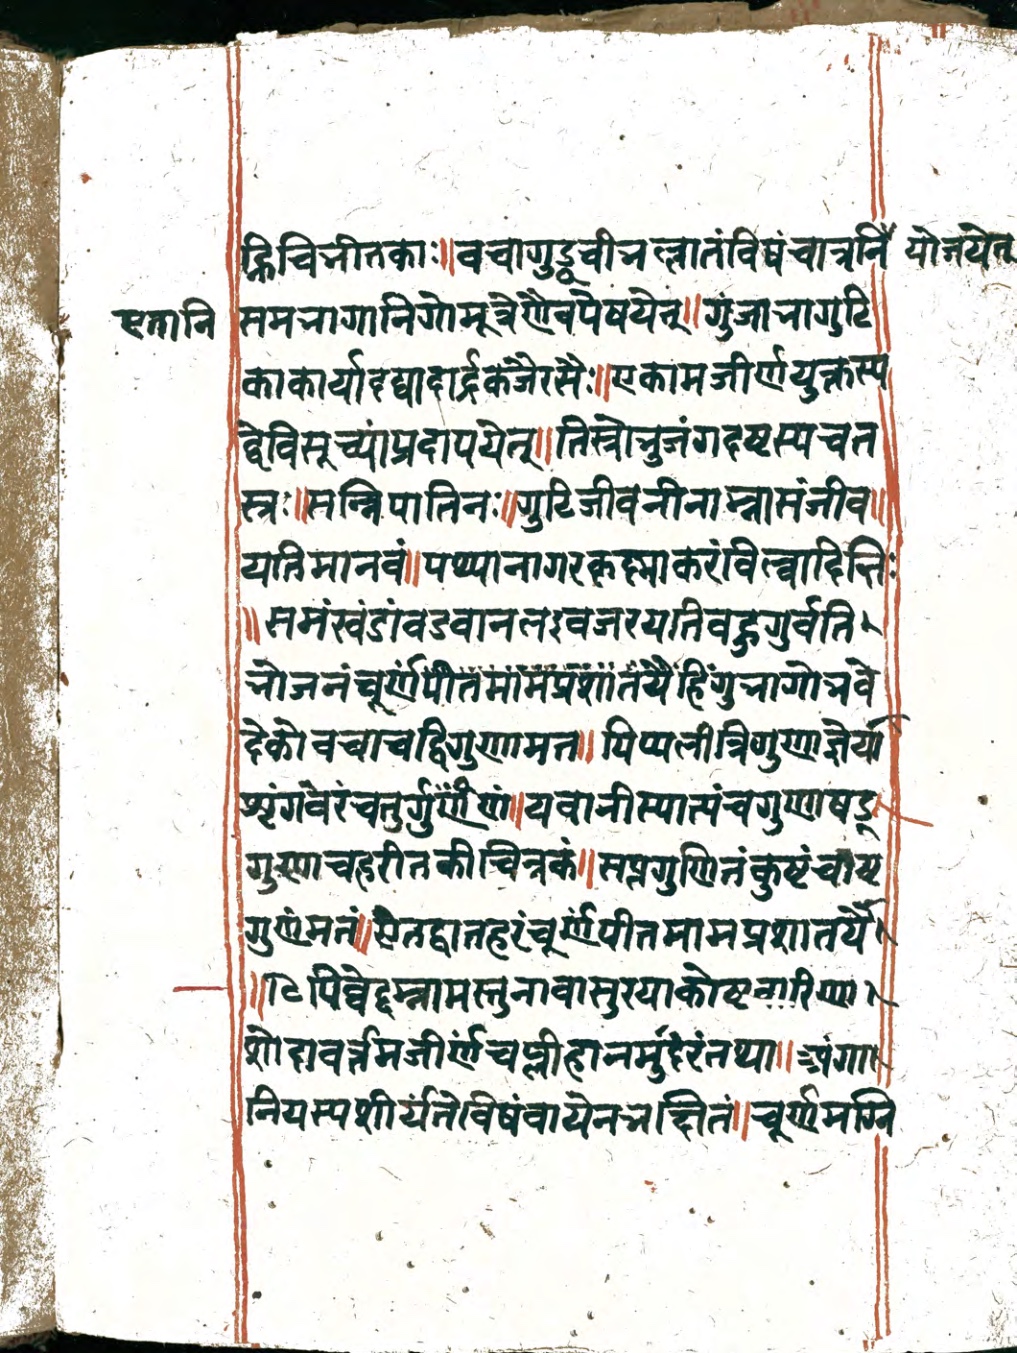 ह्निविभीतकाः॥वचागुडूचीभल्लातंविषंचात्रनि योजयेत्
एतानि समभागानिगोमूत्रेणैवपेषयेत्॥गुंजाभागुटि
काकार्यादद्यादार्द्रकजैरसैः॥एकामजीर्णयुक्तस्य
द्वेविसूच्यांप्रदापयेत्॥तिस्त्रोभुजंगदष्टस्यचत
स्त्रः॥सन्निपातिनः॥गुटिजीवनीनाम्नासंजीव॥
यतिमानवं॥पथ्यानागरकृह्माकरंविल्वाग्निभिः
॥समंखंडांवडवानलइवजरयतिवहुगुर्वति
भोजनंचूर्णंपीतमामंप्रशांतयेहिंगुभागोभवे
देकोवचाचद्विगुणामत॥पिप्पलीत्रिगुणाज्ञेर्या
शृंगवेरंचतुर्गुणं॥यवानीस्यात्पंचगुणाषड्
गुणाचहरीतकीचित्रकं॥सप्तगुणितंकुष्टंचाष्ट
गुणंमतं॥ऐतद्वातहरंचूर्णंपीतमामप्रशातयै
॥पिवेद्दध्नामस्तुनावासुरयाकोष्टवारिणा
शोदावर्त्तमजीर्णंचप्लीहानमुदरंतथा॥अंगा
नियस्यशीर्यंतेविषंवायेनभक्षितं॥चूर्णमग्नि